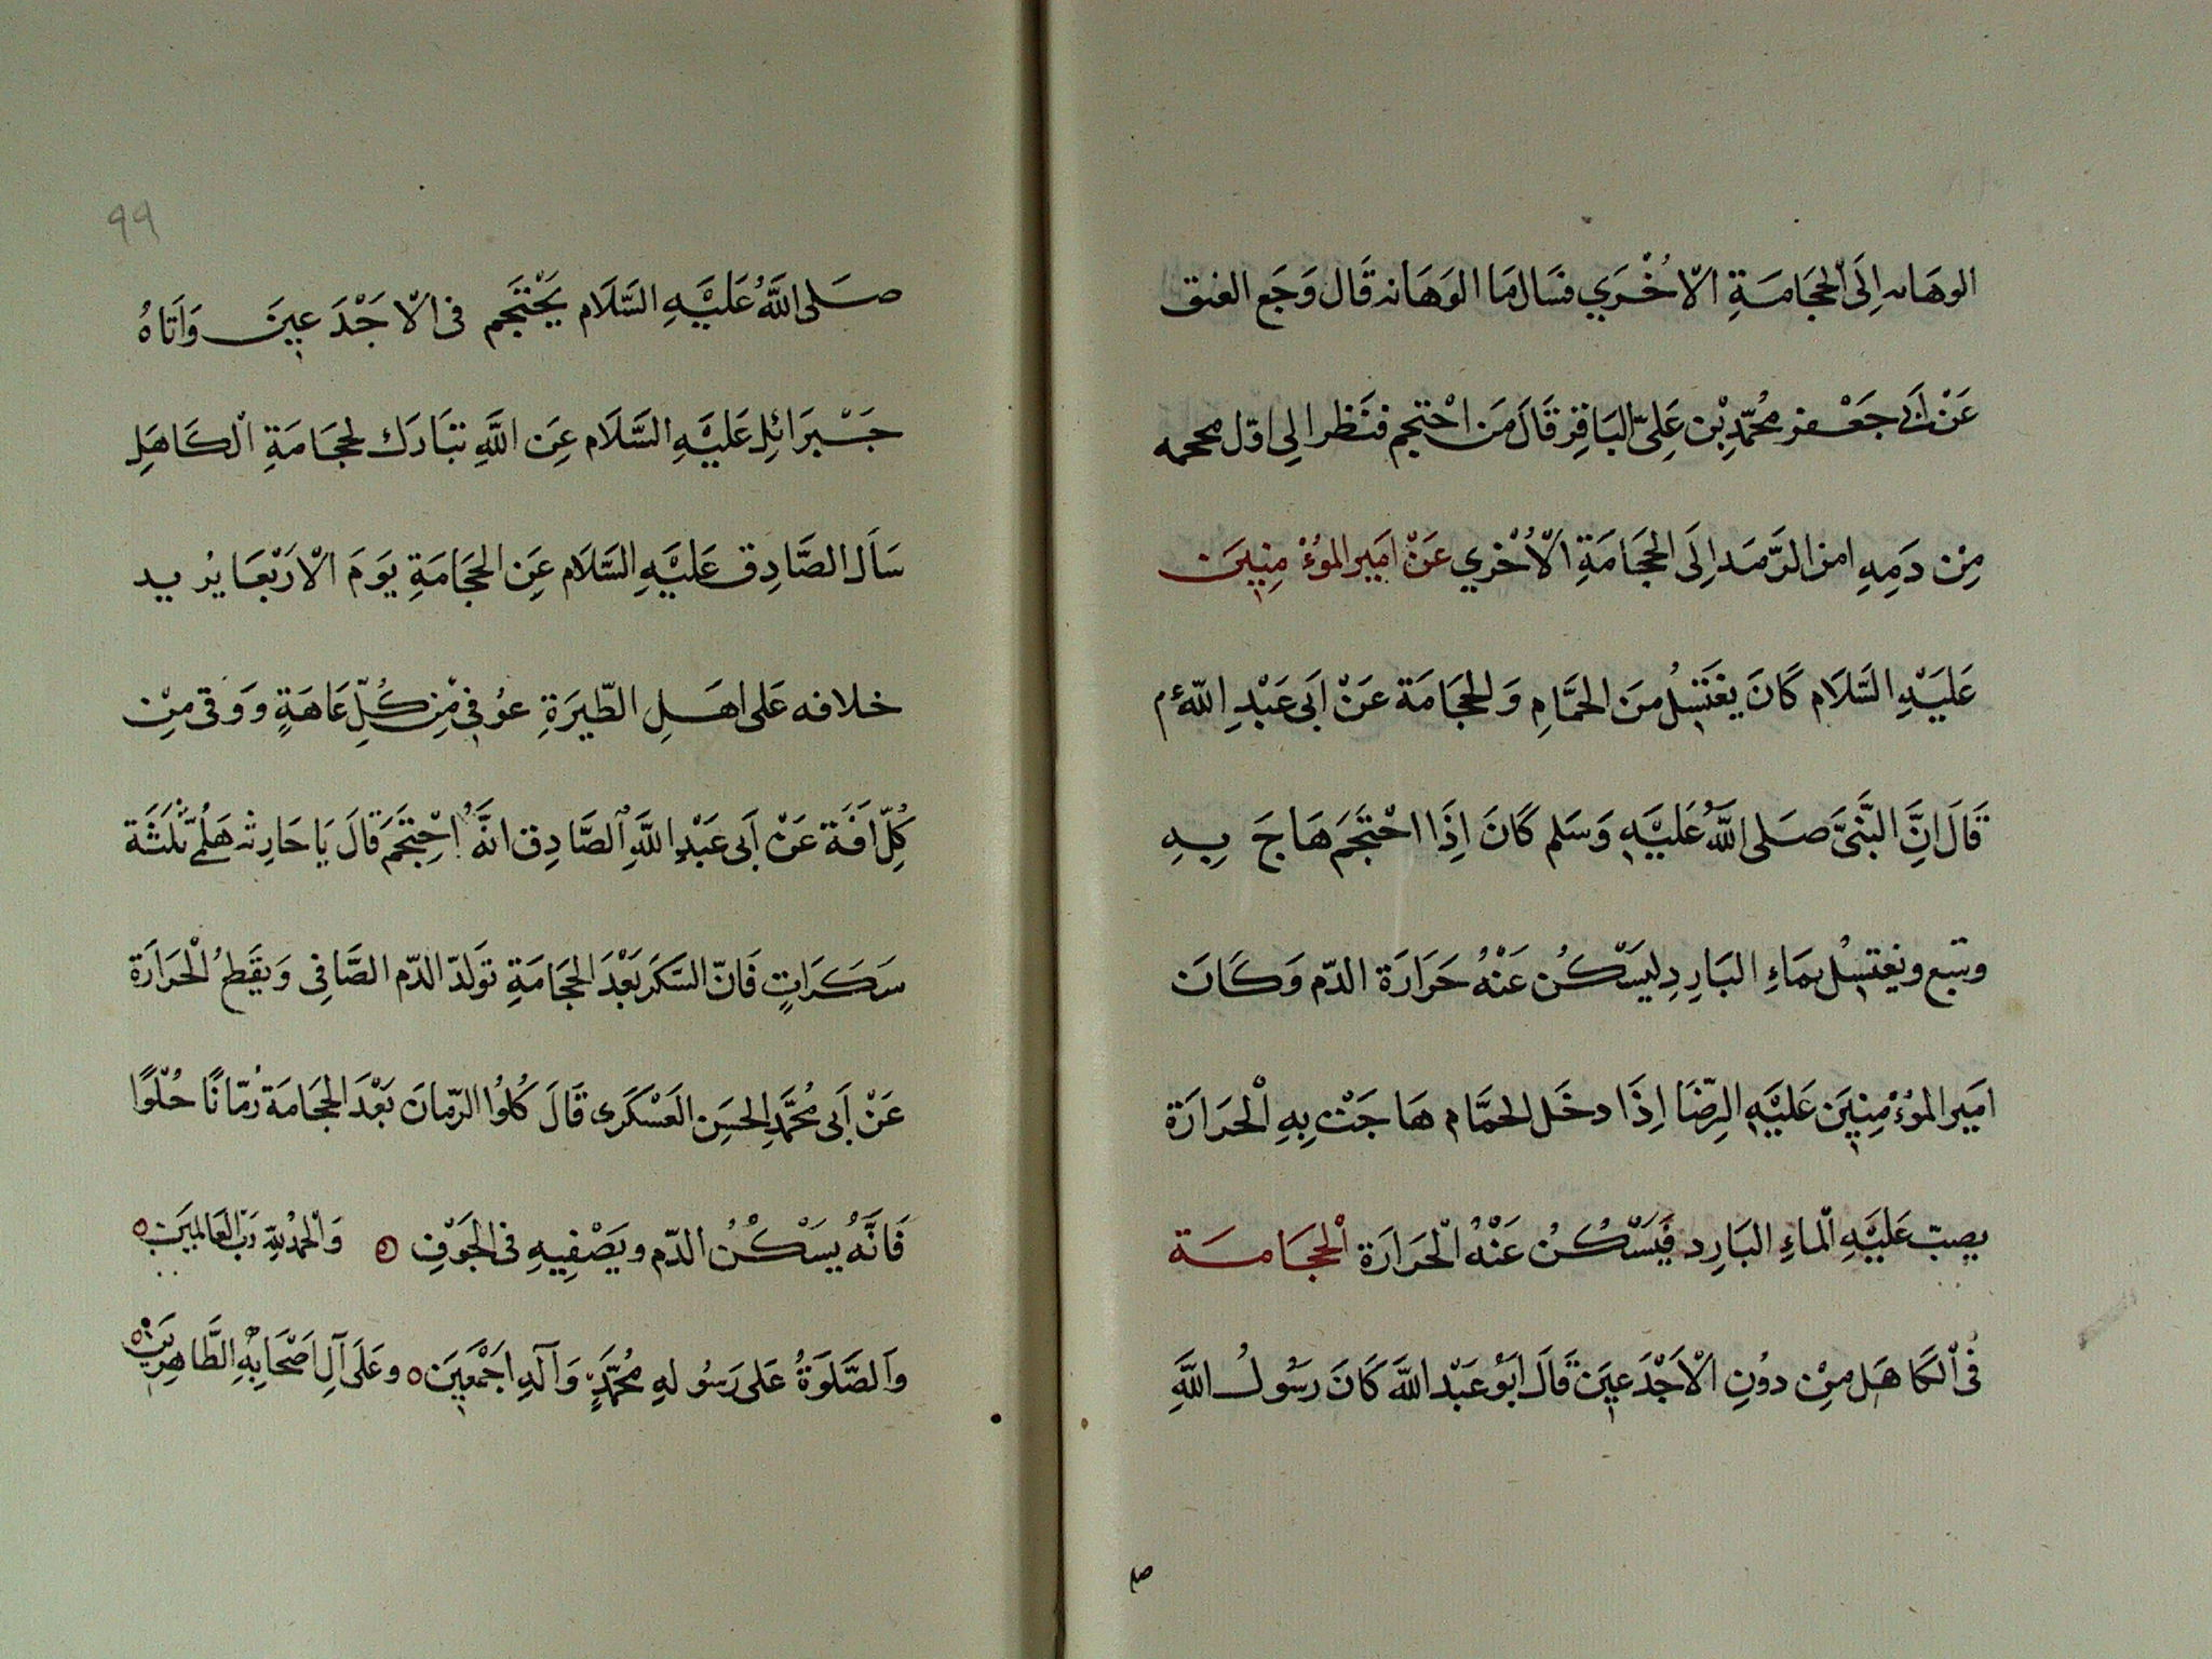 الوهانه اِلَى الْحِجَامَةِ الْاُخْرَي فسَال مَا الوَهَانه قَال وَجَع العنق
عَنْ اَبي جَعْفر مُحَمَّدِ بْنِ عَلِىّ البَاقِرِ قَالَ مَن احْتجم فنَظر الى اوّل محجمه
مِنْ دَمِهِ امن الرَّمَد اِلَى الحِجَامَةِ الْاُخْرَي عَنْ امَير الموُءْمِنِينَ
عَليَهِ السَّلَام كَانَ يغَتَسِلُ مِنَ الحَمَّامِ وَالحِجَامَة عَنْ اَبى عَبْدِ اللّٰه ع م
قَالَ اِنَّ النَّبىَّ صَلى اللّٰهُ عَليَهِ وَسَلم كَانَ اِذَا احْتجَمَ هَاجَ بِهِ
وتبيع ويغتسِلُ بمَاءِ البَارِدِ ليسَكُن عَنْهُ حَرَارَة الدّم وَكَانَ
امَير الموُءْمِنِينَ عَليَهِ الرِّضَا اِذَا دخَل الحمَّام هَاجَتْ بِهِ الْحَرَارَة
يصِبّ عَليَهِ الْماءِ البَارِد فَيَسْكُنُ عَنْهُ الْحَرَارَة الْحِجَامَة
فى الْكَاهَل مِنْ دوُنِ الْاَجْدَعِينَ قَالَ ابُو عَبْد اللّٰه كَانَ رَسُولُ اللّٰهِ
صلے
٩٩
صَلى اللّٰهُ عَليَهِ السَّلَام يَحْتَجم فى الْاَجْدَعِينَ وَاَتَاهُ
جَبْرَائِل عَليَهِ السَّلَام عَنِ اللّٰهِ تبَارَك لحِجَامَةِ الْكَاهَلِ
سَاَلَ الصَّادِق عَليَهِ السَّلَام عَنِ الحِجَامَةِ يوَمَ الْاَرْبَعَا يرُيد
خلافه عَلى اهَلِ الطّيرَةِ عوُفى مِن كُلِّ عَاهَةٍ وَوَقى مِنْ
كُلِّ افَة عَنْ اَبى عَبْدِ اللّٰهِ الصَّادِق انَّهُ اِحْتَجَمَ قَالَ يَا حَارِث هَلُمّ ثَلَثَة
سَكَرَاتٍ فَانّ السَكَر بَعْدَ الحِجَامَةِ تولدّ الدّم الصَّافِى وَيقَطعُ الْحَرَارَة
عَنْ اَبى مُحَمَّدِ الحسَنِ العَسْكَرى قَالَ كُلوُا الرّمانَ بَعْدَ الحِجَامَة رُمّانًا حُلْوًا
فَانَّهُ يسَكُنُ الدّم ويصَفِيهِ فى الجَوَفِ ۞ وَالْحَمْدُ لِلّٰهِ رَبِّ العَالمينَ ۝
وَالصَّلوَةُ عَلى رَسُولهِ مُحَمَّدٍ وَآلهِ اجَمْعَينَ ۝ وعَلَى آلِ اَصْحَابِهِ الطَّاهِرِينَ ۝